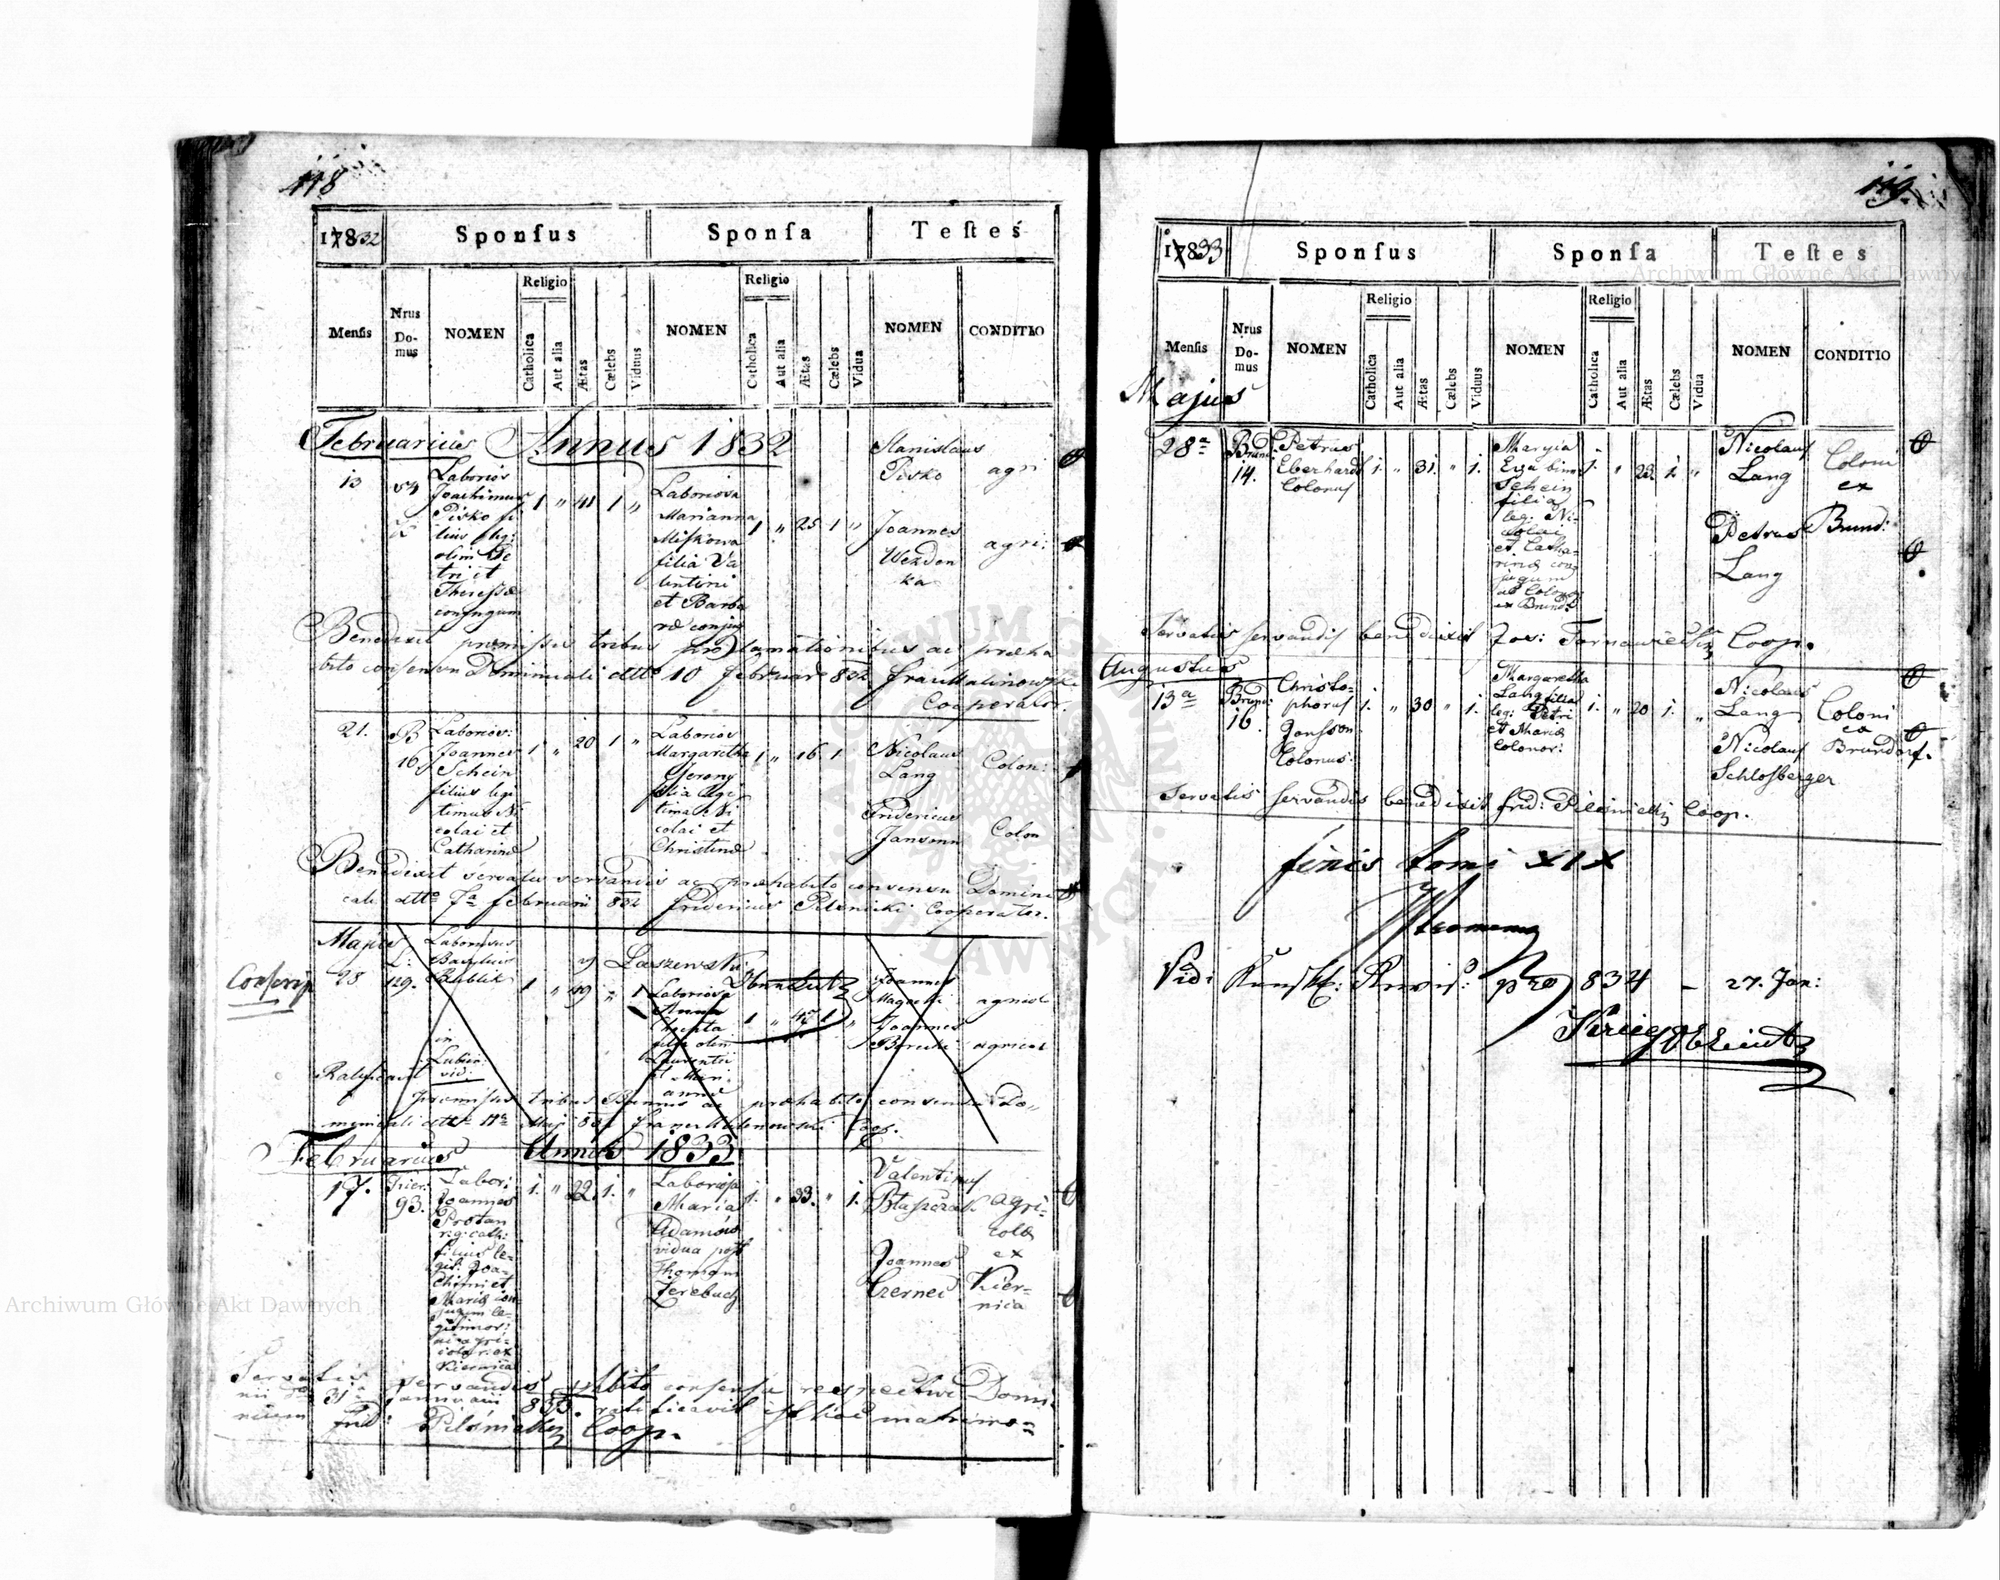 118
1832
Sponsus
Sponsa
Testes
Mensis
Nrus Domus
NOMEN
Religio
Catholica
Aut alia
Ætas
Cælebs
Viduus
NOMEN
Religio
Catholica
Aut alia
Ætas
Cælebs
Vidua
NOMEN
CONDITIO
Februarius Annus 1832
13
Laborios
Joachimus
Pisko fi
lius leg:
olim Pe
tri et
Theressæ
conjugum
1 " 41 1 "
Laboriosa
Marianna
Miskowa
filia Va
lentini
et Barba
ræ conjug
1 " 25 1 "
Stanislaus
Pisko
agri
Joannes
Wezden
ka
agri:
Benedixit premissis tribus proclamationibus ac præha
bito consensu Dominicali dtto 10 Februar 832 Fran Kalinowski
Cooperator.
21.
B
16
Laborios:
Joannes
Schein
filius legi
timus Ni
colai et
Catharinæ
1 " 20 1 "
Laborios
Margaretha
Gerony
filia legi
tima Ni
colai et
Christinæ
1 " 16 1
Nicolaus
Lang
Colon:
Fridericus
Jansonn
Colon
Benedixit servatis servandis ac præhabito consensu Domini
cali dtto 7a Februarii 832 Fridericus Pilsnicki Cooperator.
Majus
28
129.
Laboriosus
Bublik
1 " 49 " 1
Laszewski
Laboriosa
Anna
filia olim
Laurentii
et Mari
annæ
1 " 45 1 "
Joannes
agricol
Joannes
agricol
in
Ratificavit
premissis tribus Bannis ac præhabito consensu Do
minicali dtto
Coop.
Februarius Annus 1833
17.
Kier:
93.
Labor:
Joannes
Protan
rig: cath:
filius le-
git: Joa-
chimi et
Mariæ con
jugum le-
gitimor:
agri-
color: ex
Kiernica
1. " 22. 1. "
Laboriosa
Maria
Adamów
vidua post
Thomam
Zerebuch
1. " 33. " 1.
Valentinus
Błaszczak
Joannes
Czernec
agri-
colæ
ex
Kier-
nica
Servatis servandis habito consensu respectivi Domi
nii 31a Januarii 833. ratificavit istud matrimo=
nium Frid: Pilśnicki Coop.
119.
1833
Sponsus
Sponsa
Testes
Mensis
Nrus Domus
NOMEN
Religio
Catholica
Aut alia
Ætas
Cælebs
Viduus
NOMEN
Religio
Catholica
Aut alia
Ætas
Cælebs
Vidua
NOMEN
CONDITIO
Majus
28a
Brund
14.
Petrus
Eberhard
Colonus
1. " 31. " 1.
Maryia
Eva bino:
Schein
filia
leg: Ni-
colai
et Catha-
rinæ con
jugum
Colonor
ex Brund:
1. " 23. 1. "
Nicolaus
Lang
Petrus
Lang
Coloni
ex
Brund:
Servatis servandis benedixit Jos: Tarnawiecki Coop.
Augustus
13a
Brund
16.
Christo-
phorus
Jonsson
Colonus.
1. " 30 " 1.
Margaretha
Lang filia
leg: Petri
et Mariæ
Colonor:
1. " 20 1. "
Nicolaus
Lang
Nicolaus
Schlosberger
Coloni
ex
Brundorf.
Servatis servandis benedixit Frid: Pilśnicki Coop.
finis tomi XIX
Vid: Revis: pro 834 - 27. Jan:
Archiwum Główne Akt Dawnych
Archiwum Główne Akt Dawnych